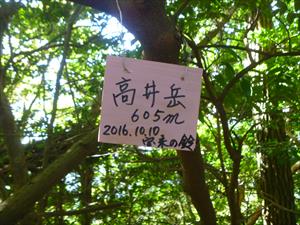 高井岳
605m
2016.10.10
宝来の鈴